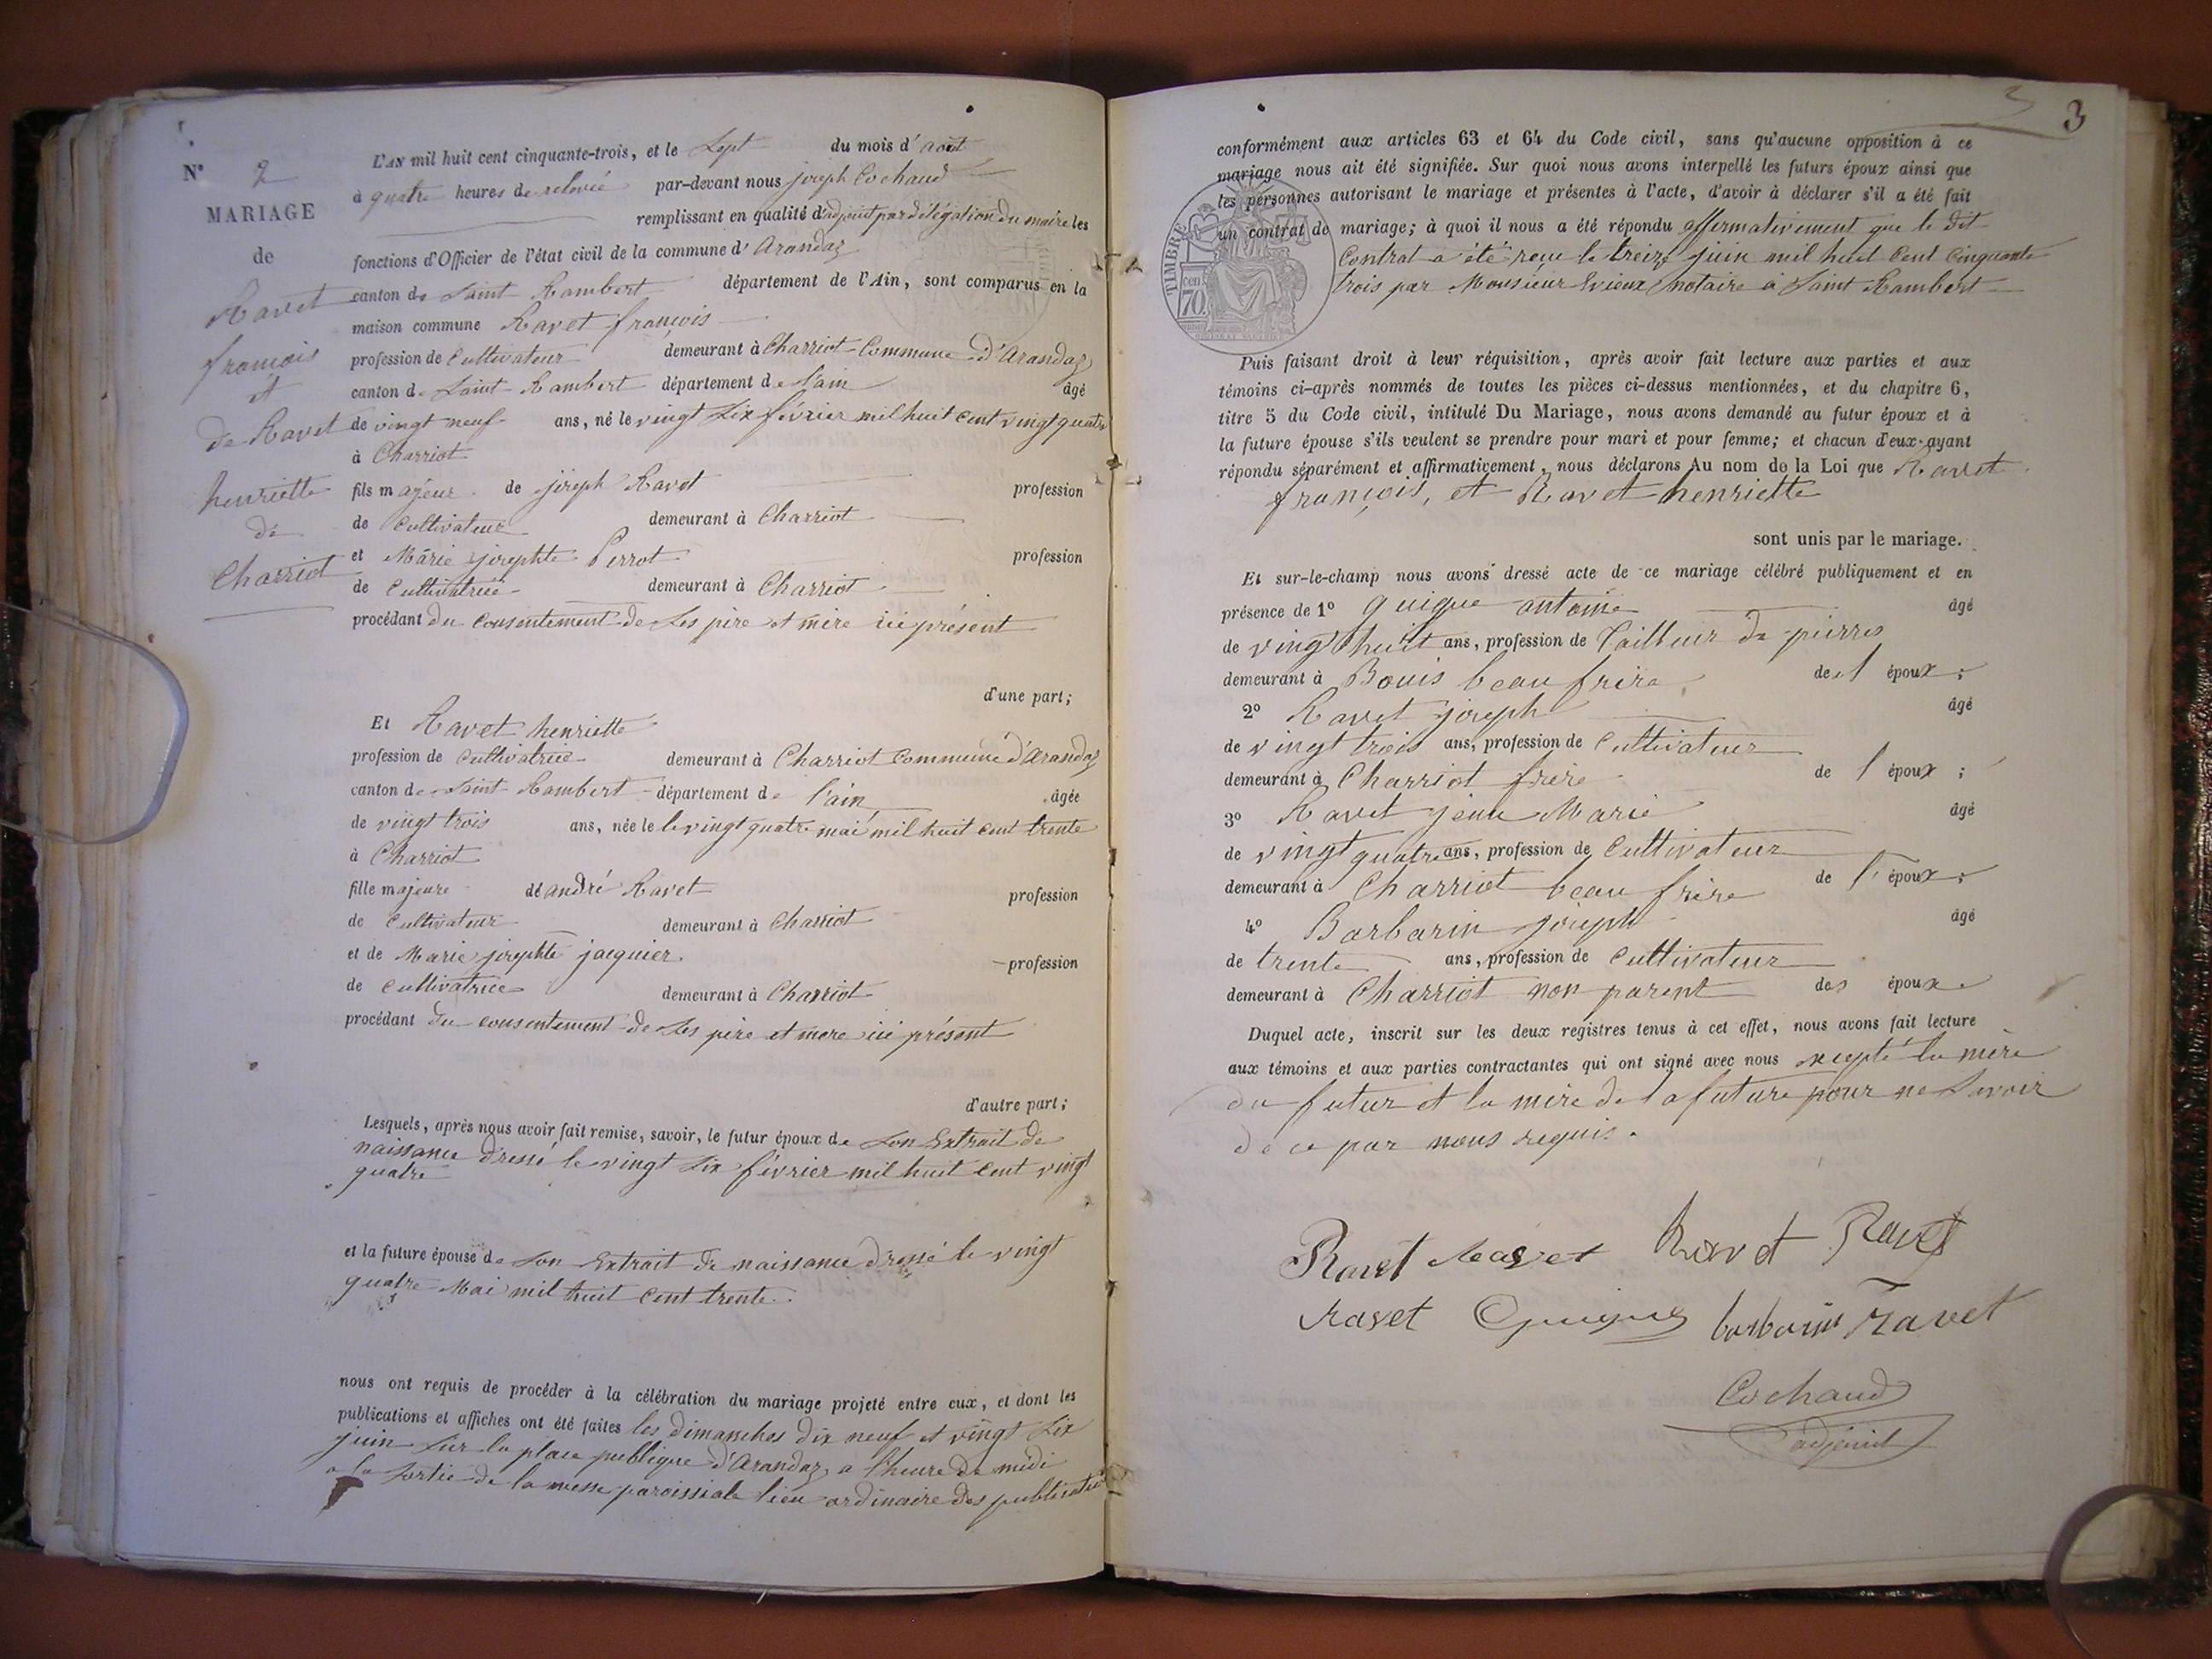 N° 2
MARIAGE
de
Ravet
françois
et
de Ravet
henriette
de
Charriot
L'AN mil huit cent cinquante-trois, et le Sept du mois d'août
à quatre heures de relevée par-devant nous joseph Cochaud
remplissant en qualité d'adjoint par délégation du maire les
fonctions d'Officier de l'état civil de la commune d'Arandaz
canton de Saint Rambert département de l'Ain, sont comparus en la
maison commune Ravet françois
profession de Cultivateur demeurant à Charriot Commune d'Arandaz
canton de Saint Rambert département de l'ain âgé
de vingt neuf ans, né le vingt Six fevrier mil huit cent vingt quatre
à Charriot
fils majeur de joseph Ravet profession
de Cultivateur demeurant à Charriot
et Marie josephte Perrot profession
de Cultivatrice demeurant à Charriot
procédant du Consentement de Ses père et mère ici présent
d'une part;
Et Ravet henriette
profession de Cultivatrice demeurant à Charriot Commune d'Arandaz
canton de Saint Rambert département de l'ain âgée
de vingt trois ans, née le le vingt quatre mai mil huit cent trente
à Charriot
fille majeure de andré Ravet profession
de Cultivateur demeurant à Charriot
et de Marie josephte jacquier profession
de Cultivatrice demeurant à Charriot
procédant du consentement de Ses père et mere ici présent
d'autre part;
Lesquels, après nous avoir fait remise, savoir, le futur époux de Son Extrait de
naissance dressé le vingt Six février mil huit Cent vingt
quatre
et la future épouse de Son Extrait de naissance dressé le vingt
quatre Mai mil huit Cent trente.
nous ont requis de procéder à la célébration du mariage projeté entre eux, et dont les
publications et affiches ont été faites les dimanches dix neuf et vingt Six
juin Sur la place publique d'Arandaz, a l'heure de midi
a la Sortie de la messe paroissiale lieu ordinaire des publication
3
conformément aux articles 63 et 64 du Code civil, sans qu'aucune opposition à ce
mariage nous ait été signifiée. Sur quoi nous avons interpellé les futurs époux ainsi que
les personnes autorisant le mariage et présentes à l'acte, d'avoir à déclarer s'il a été fait
un contrat de mariage; à quoi il nous a été répondu affirmativement que le dit
Contrat a été reçu le treize juin mil huit Cent Cinquante
trois par Monsieur Evieux notaire à Saint Rambert
TIMBRE
70 cen
Puis faisant droit à leur réquisition, après avoir fait lecture aux parties et aux
témoins ci-après nommés de toutes les pièces ci-dessus mentionnées, et du chapitre 6,
titre 5 du Code civil, intitulé Du Mariage, nous avons demandé au futur époux et à
la future épouse s'ils veulent se prendre pour mari et pour femme; et chacun d'eux ayant
répondu séparément et affirmativement, nous déclarons Au nom de la Loi que Ravet
françois, et Ravet henriette
sont unis par le mariage.
Et sur-le-champ nous avons dressé acte de ce mariage célébré publiquement et en
présence de 1° guigue antoine âgé
de vingt huit ans, profession de Tailleur de pierres
demeurant à Bouis beau frère de l époux;
2° Ravet joseph âgé
de vingt trois ans, profession de Cultivateur
demeurant à Charriot frère de l époux;
3° Ravet jean Marie âgé
de vingt quatre ans, profession de Cultivateur
demeurant à Charriot beau frère de l' époux;
4° Barbarin joseph âgé
de trente ans, profession de Cultivateur
demeurant à Charriot non parent des époux
Duquel acte, inscrit sur les deux registres tenus à cet effet, nous avons fait lecture
aux témoins et aux parties contractantes qui ont signé avec nous excepté la mère
du futur et la mère de la future pour ne Savoir
de ce par nous requis.
Ravet Ravet Ravet Ravet
Ravet Guigue barbarin Ravet
Cochaud
adjoint